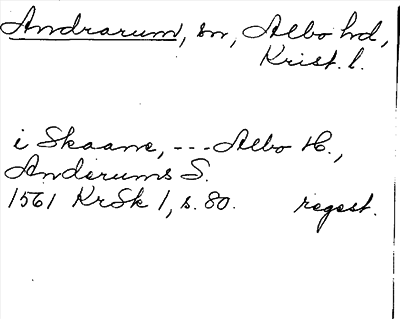 Andrarum, sn, Albo hd,
Krist. l.
i Skaane, --- Albo H.,
Anderums S.
1561 KrSk 1, s. 80. regest.